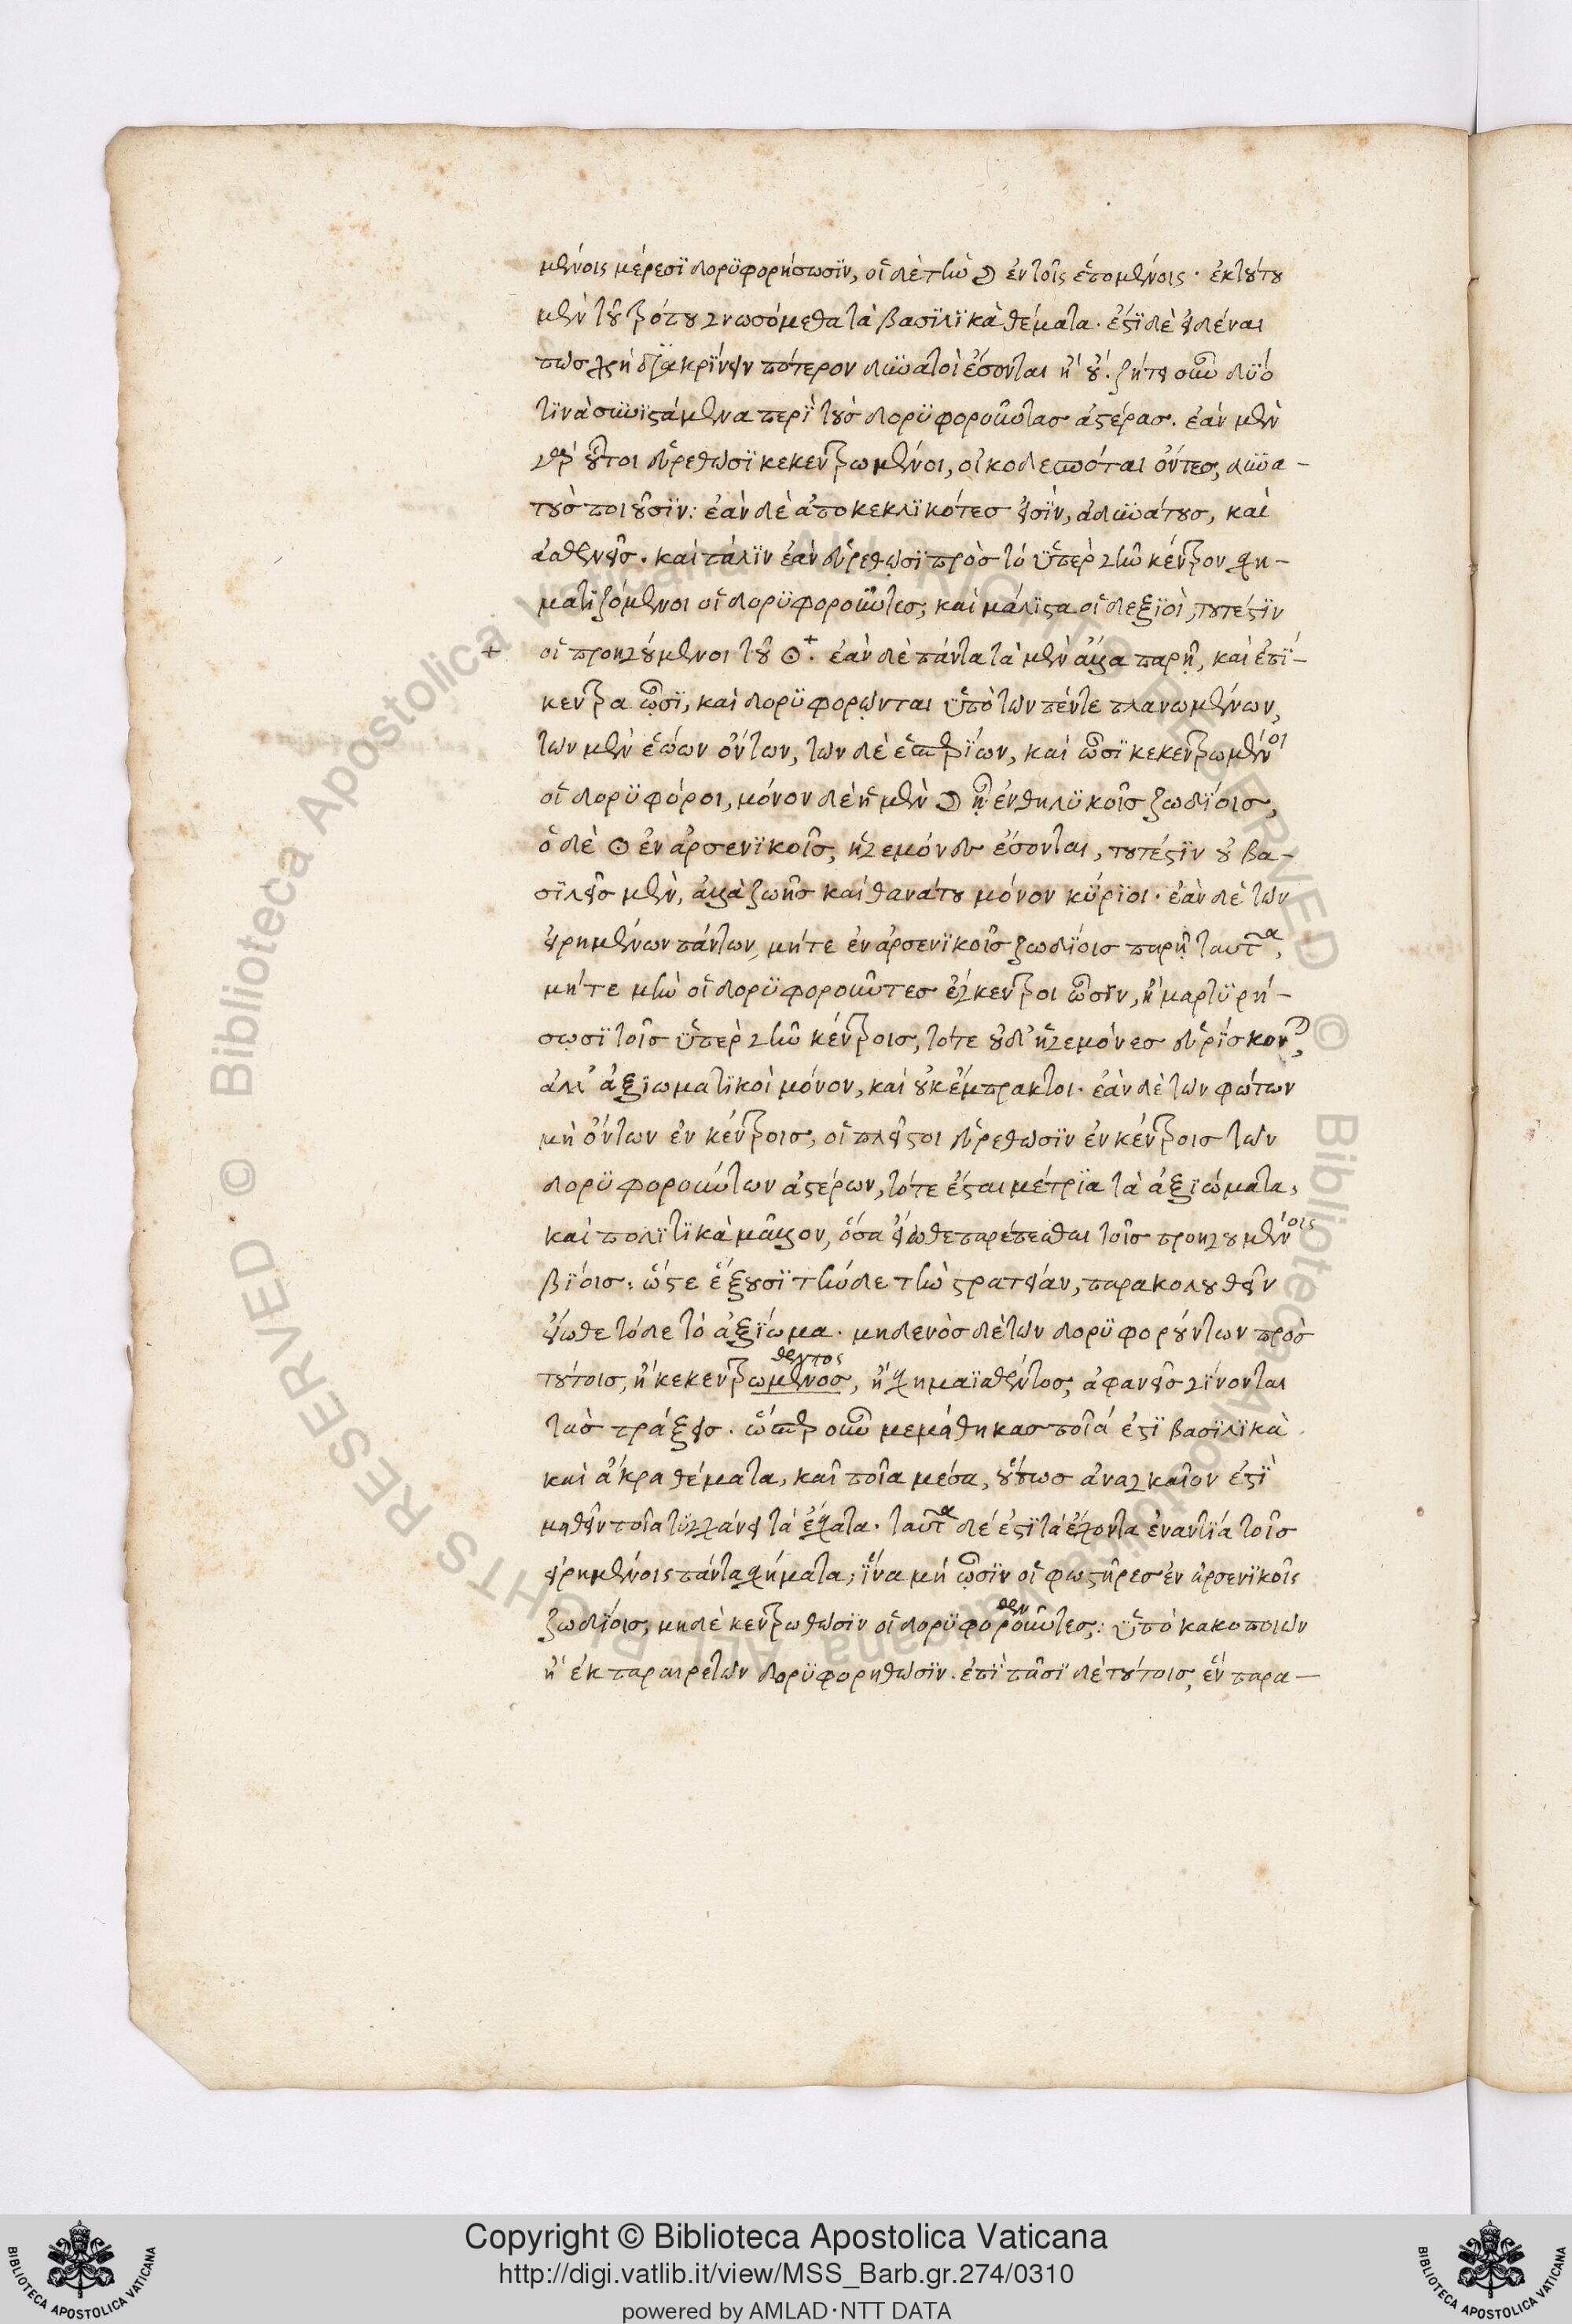 μένοις μέρεσϊ δορϋφορήσωσϊν, οἱ δὲ τὴν ☽ ἐν τοῖς ἑπομένοις · ἐκ τούτου
μὲν τοῦ τρόπου γνωσόμεθα τὰ βασϊλϊκὰ θέματα · ἔστϊ δὲ εἰδέναι
πῶς χρὴ δϊακρίνειν πότερον δυνατοὶ ἔσονται ἢ οὔ. ζήτει οὖν δϋό
τϊνὰ συνϊστάμενα περὶ τοὺς δορϋφοροῦντας ἀστέρας. ἐὰν μὲν
γὰρ οὗτοι εὑρεθῶσϊ κεκεντρωμένοι, οἰκοδεσπόται ὄντες, δυνα-
τοὺς ποιοῦσϊν: ἐὰν δὲ ἀποκεκλϊκότες εἰσὶν, ἀδυνάτους, καὶ
ἀσθενεῖς. καὶ πάλϊν ἐὰν εὑρεθῶσϊ πρὸς τὸ ὑπὲρ γῆν κέντρον σχη-
ματϊζόμενοι οἱ δορϋφοροῦντες, καὶ μάλϊστα οἱ δεξϊοὶ, τουτέστϊν
+ οἱ προηγούμενοι τοῦ ☉+. ἐὰν δὲ πάντα τὰ μὲν ἄλλα παρῇ, καὶ ἐπί-
κεντρα ὦσϊ, καὶ δορϋφορῶνται ὑπὸ τῶν πέντε πλανωμένων,
τῶν μὲν ἑώων ὄντων, τῶν δὲ ἑσπερίων, καὶ ὦσϊ κεκεντρωμένοι
οἱ δορϋφόροι, μόνον δὲ ἡ μὲν ☽ ᾖ ἐν θηλϋκοῖς ζωδίοις,
ὁ δὲ ☉ ἐν ἀρσενϊκοῖς, ἡγεμόνες ἔσονται, τουτέστϊν οὐ βα-
σϊλεῖς μὲν, ἀλλὰ ζωῆς καὶ θανάτου μόνον κύρϊοι · ἐὰν δὲ τῶν
εἰρημένων πάντων, μήτε ἐν ἀρσενϊκοῖς ζωδίοις παρῇ ταῦτα,
μήτε μὴν οἱ δορϋφοροῦντες ἔγκεντροι ὦσϊν, ἢ μαρτϋρή-
σωσϊ τοῖς ὑπὲρ γῆν κέντροις, τότε οὐδ' ἡγεμόνες εὑρίσκονται,
ἀλλ' ἀξϊωματϊκοὶ μόνον, καὶ οὐκ ἔμπρακτοι · ἐὰν δὲ τῶν φώτων
μὴ ὄντων ἐν κέντροις, οἱ πλεῖστοι εὑρεθῶσϊν ἐν κέντροις τῶν
δορϋφορούντων ἀστέρων, τότε ἔσται μέτρϊα τὰ ἀξϊώματα,
καὶ πολϊτϊκὰ μᾶλλον, ὅσα εἴωθε παρέπεσθαι τοῖς προηγουμένοις
βίοις: ὥστε ἕξουσϊ τήνδε τὴν στρατείαν, παρακολουθεῖν
εἴωθε τόδε τὸ ἀξίωμα · μηδενὸς δὲ τῶν δορϋφορούντων πρὸς
θέντος
τούτοις, ἢ κεκεντρωμένος, ἢ σχηματϊσθέντος, ἀφανεῖς γίνονται
τὰς πράξεις. ὥσπερ οὖν μεμάθηκας ποῖά ἐστϊ βασϊλϊκὰ
καὶ ἄκρα θέματα, καὶ ποῖα μέσα, οὕτως ἀναγκαῖον ἐστϊ
μαθεῖν ποῖα τϋγχάνει τὰ ἔσχατα · ταῦτα δέ ἐστϊ τὰ ἔχοντα ἐναντία τοῖς
εἰρημένοις πάντα σχήματα, ἵνα μὴ ὦσϊν οἱ φωστῆρες ἐν ἀρσενϊκοῖς
θεν
ζωδίοις, μηδὲ κεντρωθῶσϊν οἱ δορϋφοροῦντες: ὑπὸ κακοποιῶν
ἢ ἐκ παραιρετῶν δορϋφορηθῶσϊν. ἐπὶ πᾶσϊ δὲ τούτοις, ἓν παρα-
Copyright © Biblioteca Apostolica Vaticana
http://digi.vatlib.it/view/MSS_Barb.gr.274/0310
powered by AMLAD·NTT DATA
BIBLIOTECA APOSTOLICA VATICANA
BIBLIOTECA APOSTOLICA VATICANA
© Biblioteca Apostolica Vaticana ALL RIGHTS RESERVED © Biblioteca Apostolica Vaticana ALL RIGHTS RESERVED